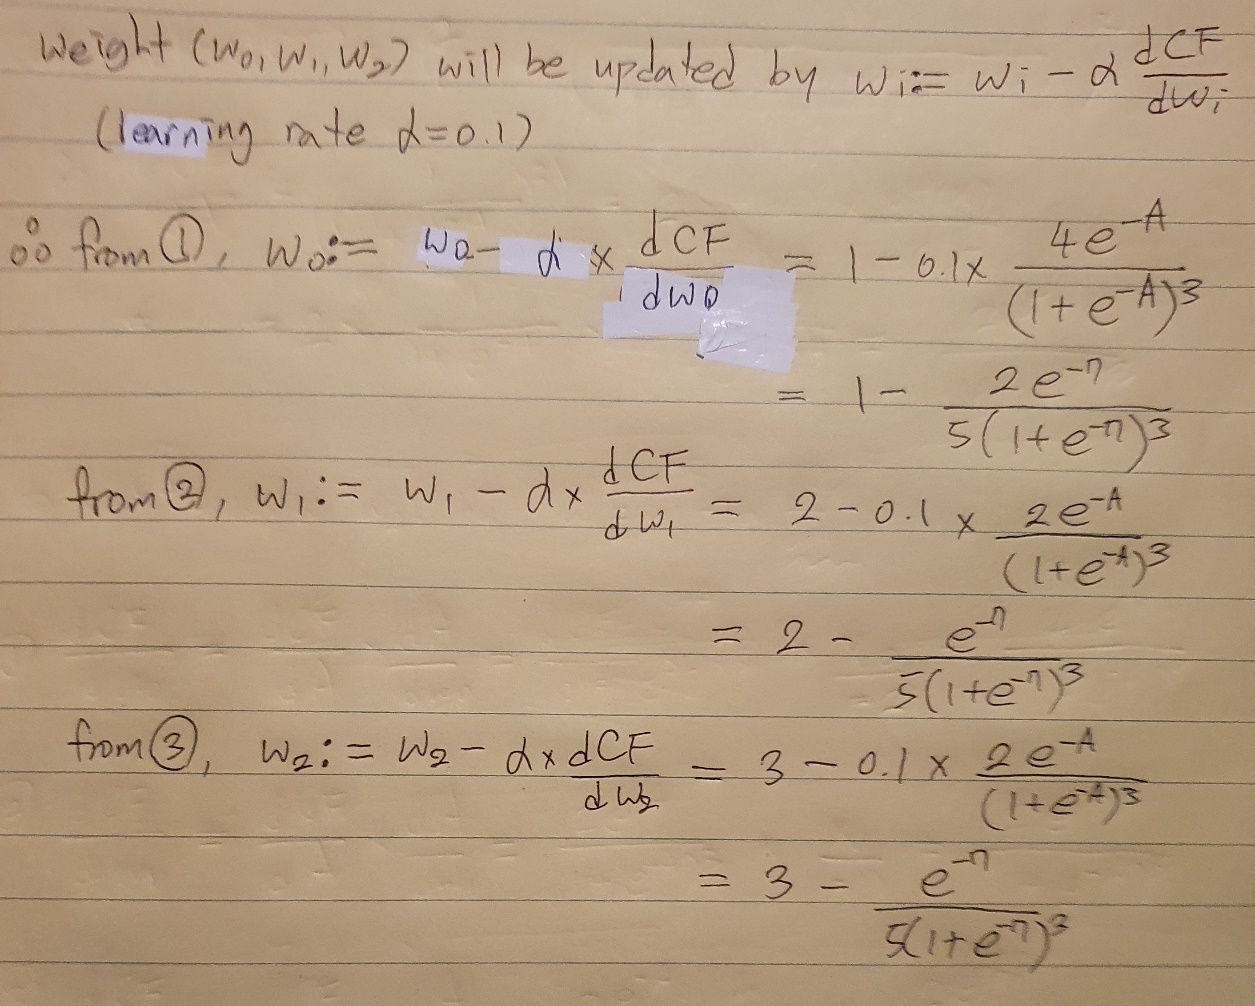 Weight (w₀, w₁, w₂) will be updated by wᵢ:= wᵢ - α dCF/dwᵢ
(learning rate α=0.1)
∴ from ①, w₀:= w₀ - α × dCF/dw₀ = 1 - 0.1× 4e^-A/(1+e^-A)^3
= 1 - 2e^-7/5(1+e^-7)^3
from ②, w₁:= w₁ - α× dCF/dw₁ = 2 - 0.1 × 2e^-A/(1+e^-A)^3
= 2 - e^-7/5(1+e^-7)^3
from ③, w₂:= w₂ - α× dCF/dw₂ = 3 - 0.1 × 2e^-A/(1+e^-A)^3
= 3 - e^-7/5(1+e^-7)^3